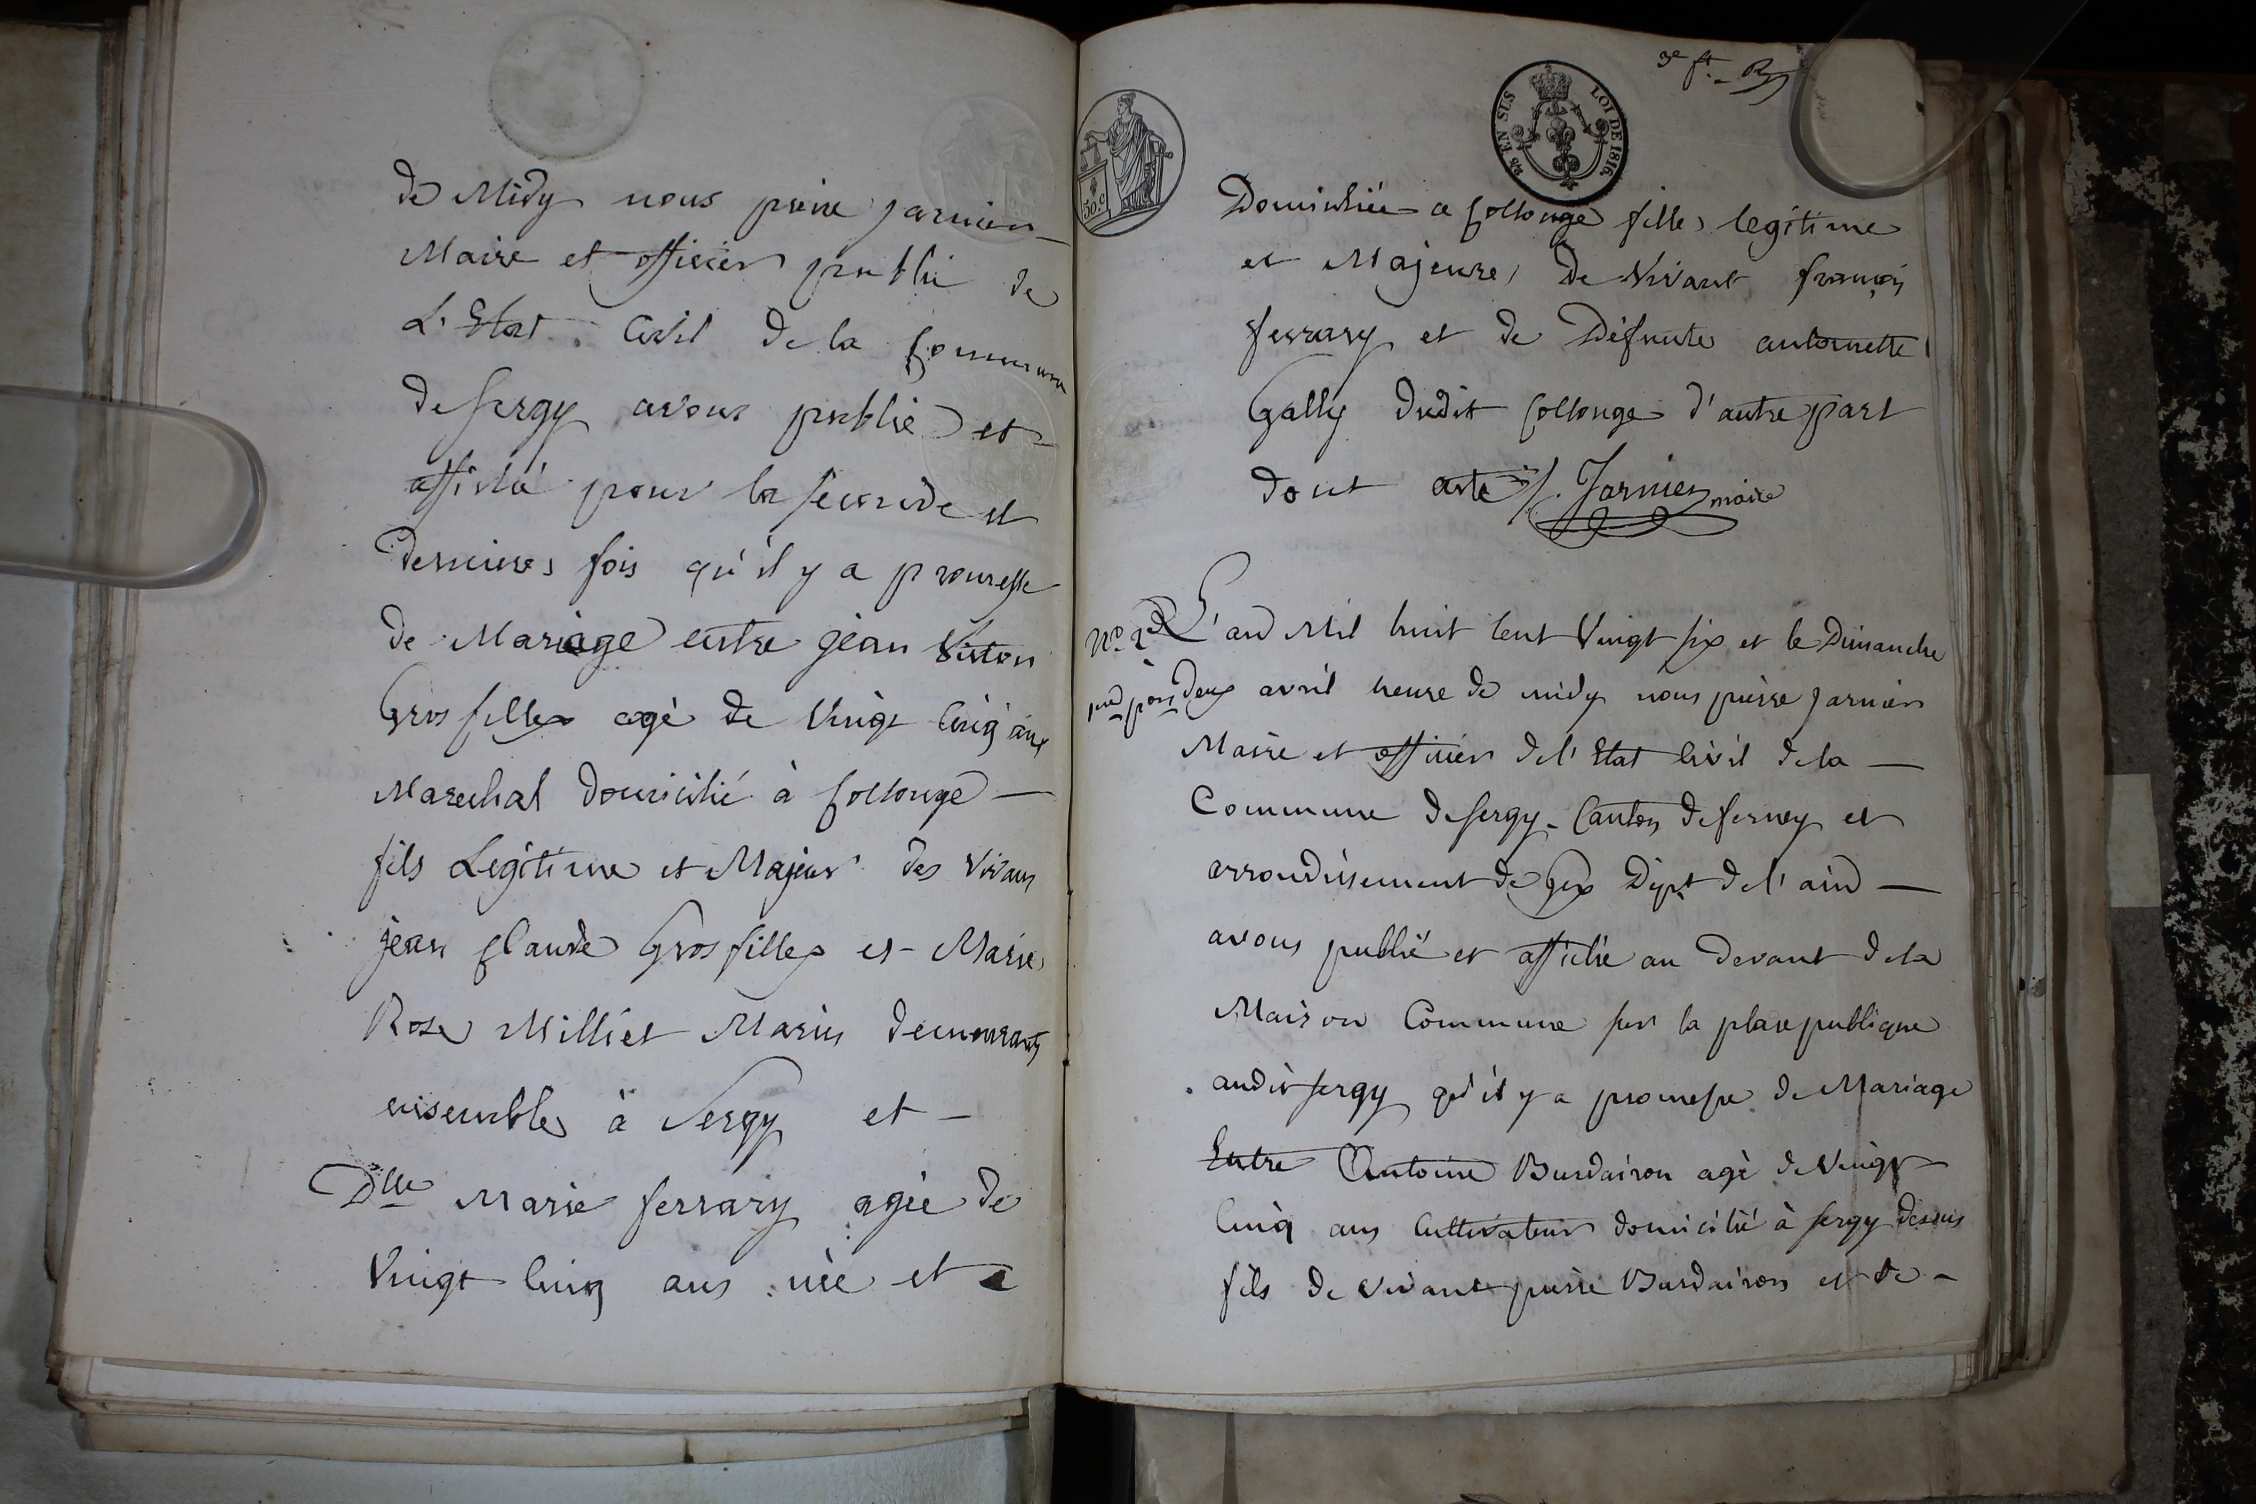 de Midy nous pierre jarnier
Maire et officier public de
L'Etat Civil de la Commune
de sergy avons publié et
affiché pour la seconde et
derniere fois qu'il y a promesse
de Mariage entre jean
Grosfillex agé de Vingt Cinq ans
Marechal domicilié à Collonge
fils Legitime et Majeur des vivans
jean Claude Grosfillex et Marie
Rose Milliet Mariés demeurants
ensembles à Sergy et
Dlle Marie ferrary agée de
Vingt Cinq ans née et
3e ft.
LOI DE 1816.
EN SUS
50.c
Domiciliée a Collonge fille legitime
et Majeure de Vivant françois
ferrary et de Défunte antoinette
Gally dudit Collonge d'autre part
dont acte /. Jarnier maire
No 2 L'an Mil huit Cent Vingt six et le Dimanche
deux avril heure de midy nous pierre jarnier
Maire et officier de l'Etat Civil de la
Commune de sergy Canton de ferney et
arrondissement de Gex Dept de l'ain
avons publié et affiché au devant de la
Maison Commune sur la place publique
audit sergy qu'il y a promesse de Mariage
Entre Antoine Burdairon agé de Vingt
Cinq ans Cultivateur domicilié à sergy dessus
fils de vivant pierre Burdairon et de